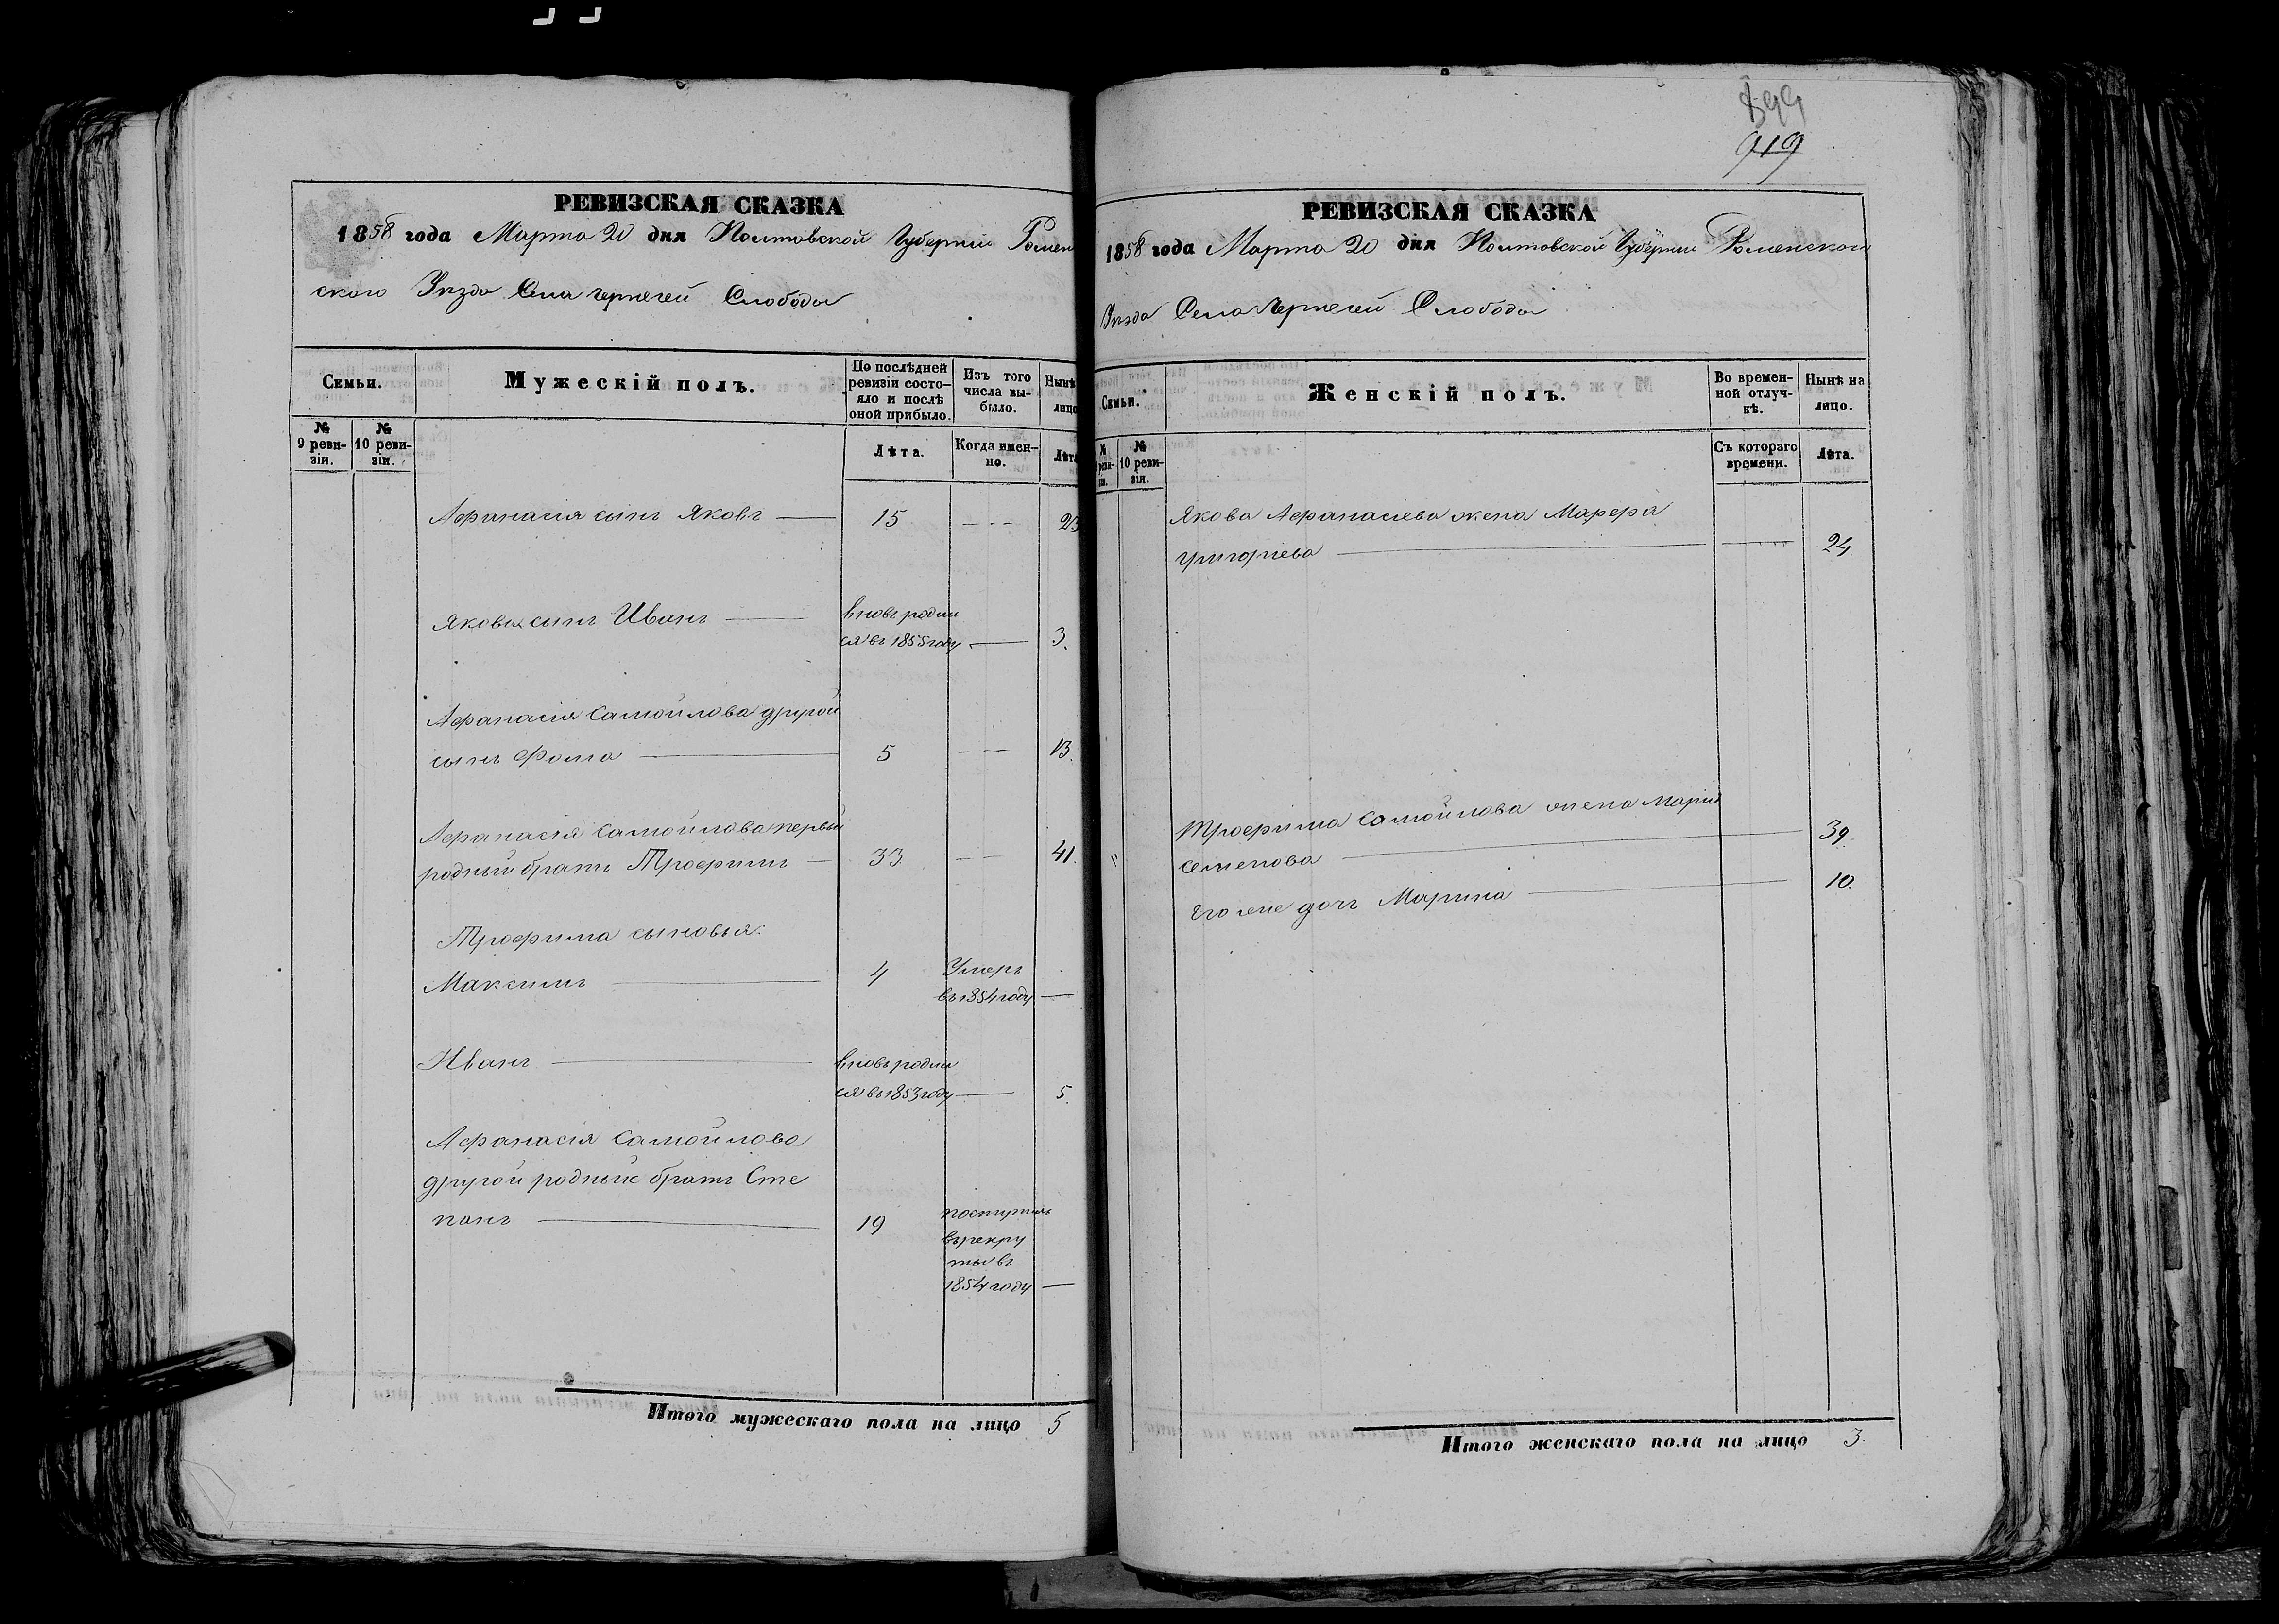 РЕВИЗСКАЯ СКАЗКА
1858 года Марта 20 дня Полтавской Губерніи Ромен
ского Уѣзда Села Чернечей Слободы
Семьи.
Мужескій полъ.
По послѣдней ревизіи состояло и послѣ оной прибыло.
Изъ того числа выбыло.
Нынѣ лицо
№ 9 ревизіи.
№ 10 ревизіи.
Лѣта.
Когда именно.
Лѣта
Афанасія сынъ Яковъ 15 23
Якова сынъ Иванъ вновь родил
ся въ 1855 году 3.
Афанасія Самойлова другой
сынъ Фома 5 13.
Афанасія Самойлова первый
родный братъ Трофимъ 33 41.
Трофима сыновья:
Максимъ 4 Умеръ
въ 1854 году
Иванъ вновь родил
ся въ 1853 году 5.
Афанасія Самойлова
другой родный братъ Сте
панъ 19 поступилъ
въ рекру
ты въ
1854 году
Итого мужескаго пола на лицо 5
899
919
РЕВИЗСКАЯ СКАЗКА
1858 года Марта 20 дня Полтавской Губерніи Роменского
Уѣзда Села Чернечей Слободы
Семьи.
Женскій полъ.
Во временной отлучкѣ.
Нынѣ на лицо.
№ реви- зіи.
№ 10 ревизіи.
Съ котораго времени.
Лѣта.
Якова Афанасіева жена Марфа
Григориева 24.
Трофима Самойлова жена Марія
Семенова 39.
Его же дочь Марина 10.
Итого женскаго пола на лицо 3.